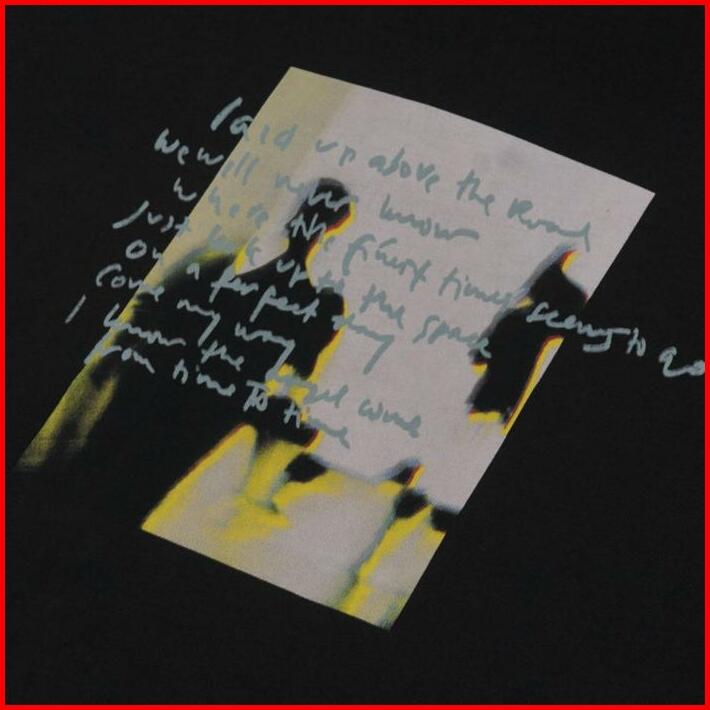 laid up above the Road
we will never know
where the finest times seems to go
Just look up to the space
on a perfect day
come my way
I know the angel come
from time to time